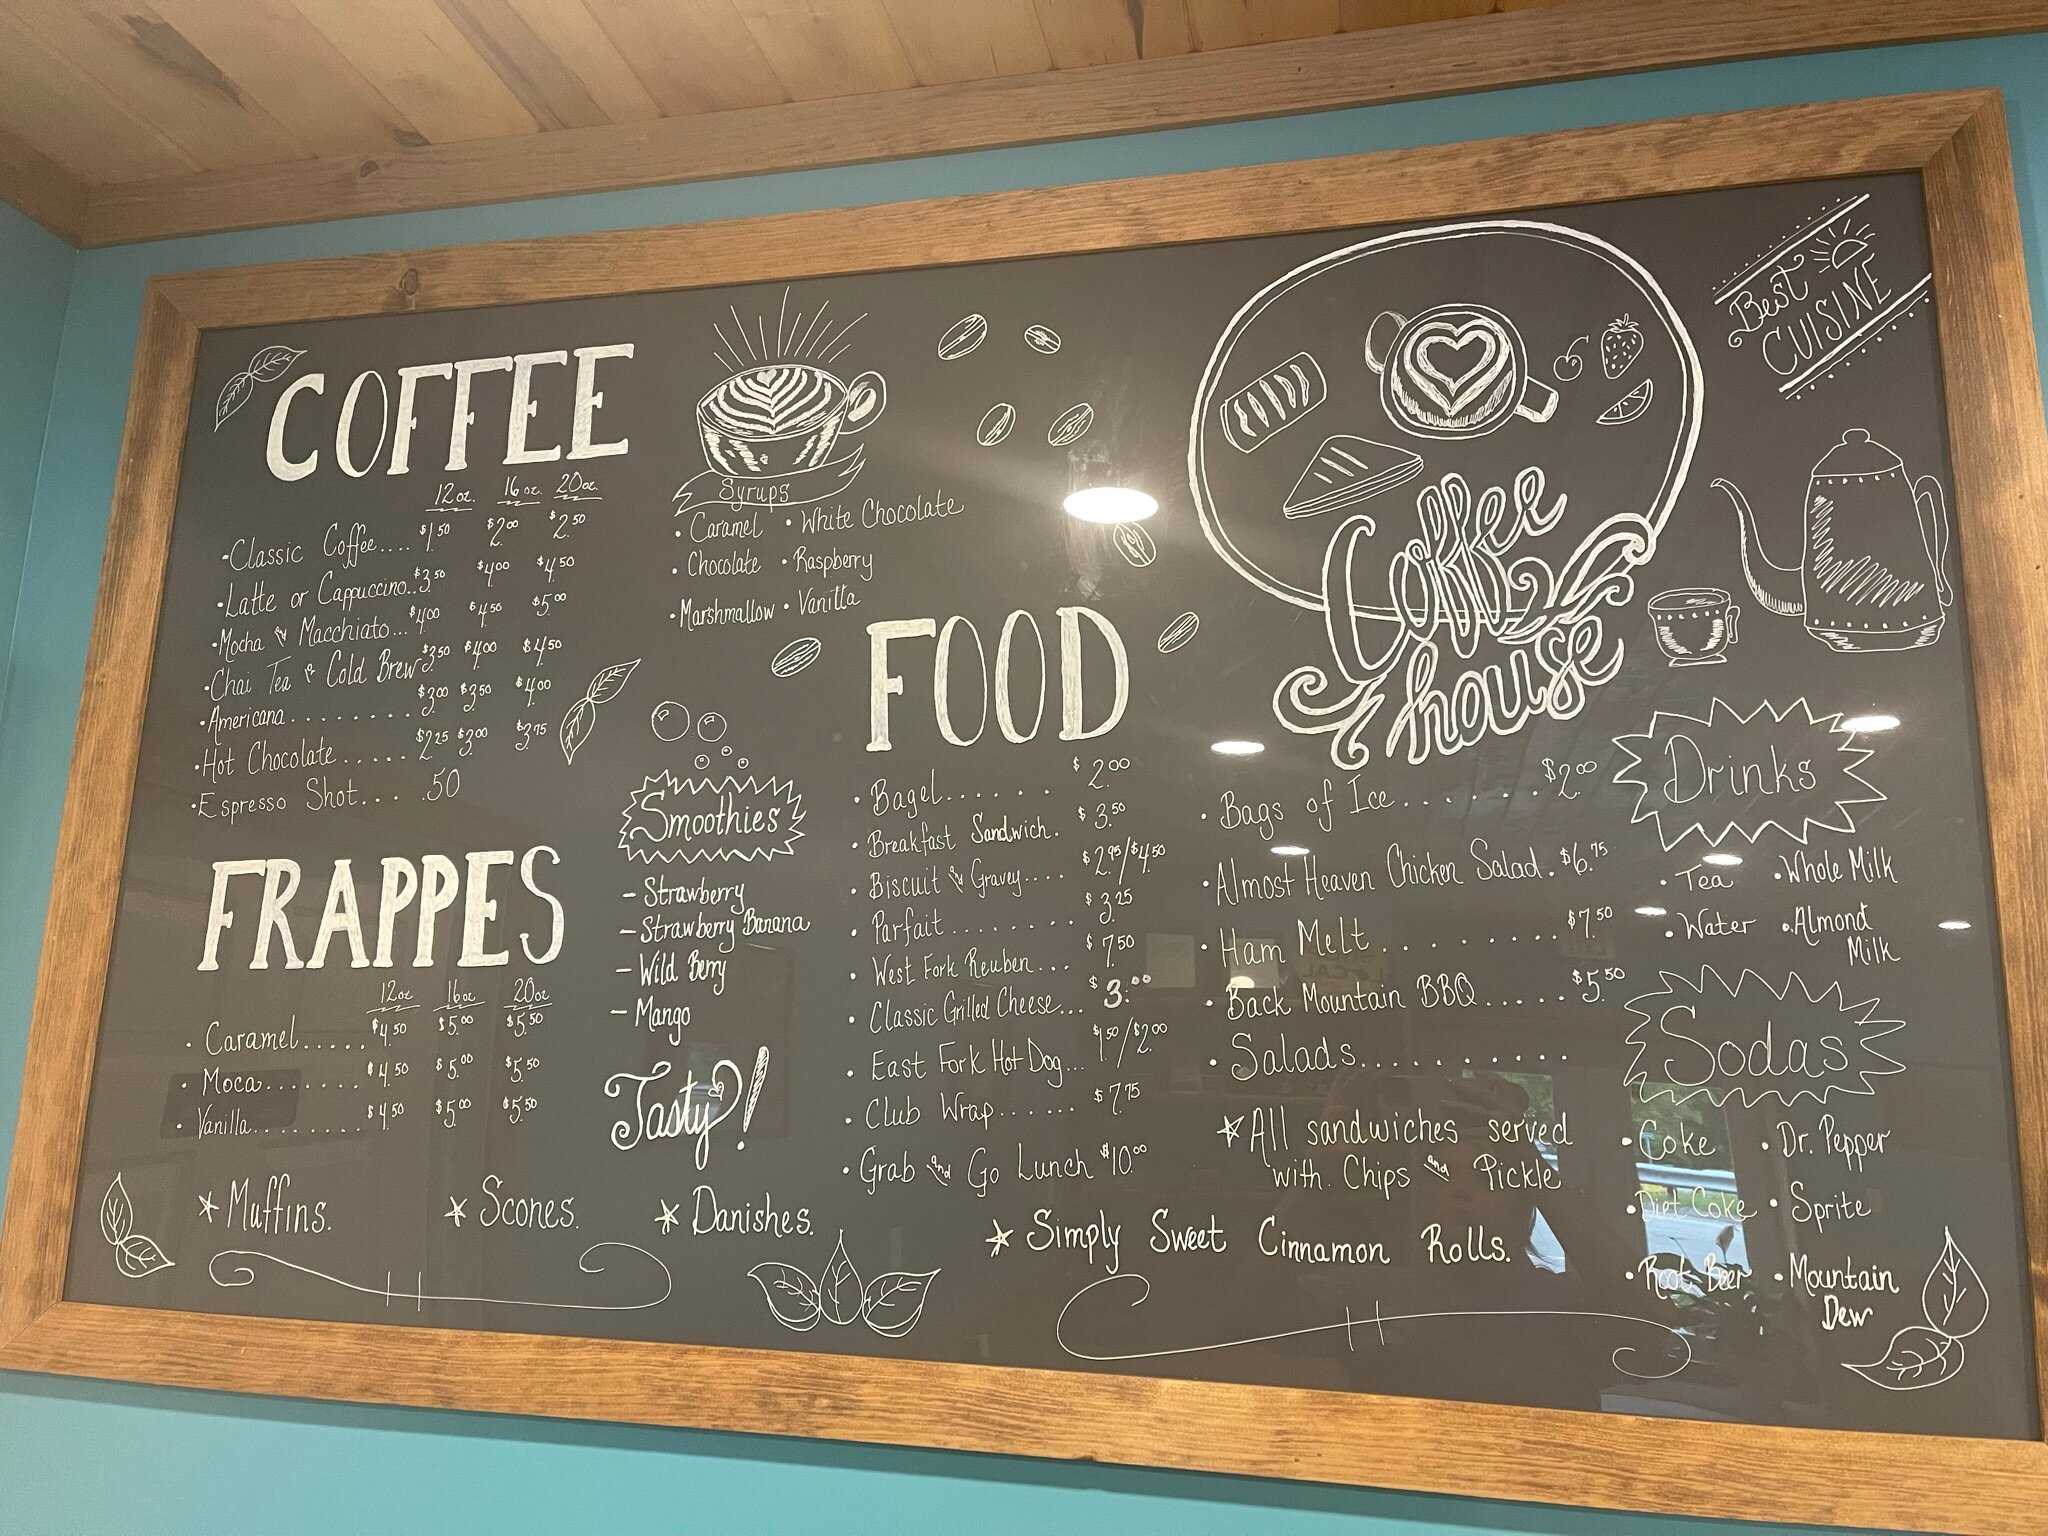 COFFEE
12oz. 16oz. 20oz.
• Classic Coffee.... $1.50 $2.00 $2.50
• Latte or Cappuccino.. $3.50 $4.00 $4.50
• Mocha & Macchiato... $4.00 $4.50 $5.00
• Chai Tea & Cold Brew $3.50 $4.00 $4.50
• Americana........ $3.00 $3.50 $4.00
• Hot Chocolate..... $2.25 $3.00 $3.75
• Espresso Shot... .50
Syrups
• Caramel • White Chocolate
• Chocolate • Raspberry
• Marshmallow • Vanilla
FRAPPES
12oz 16oz 20oz
• Caramel..... $4.50 $5.00 $5.50
• Moca....... $4.50 $5.00 $5.50
• Vanilla........ $4.50 $5.00 $5.50
Smoothies
- Strawberry
- Strawberry Banana
- Wild Berry
- Mango
Tasty!
* Muffins. * Scones. * Danishes.
FOOD
• Bagel...... $2.00
• Breakfast Sandwich. $3.50
• Biscuit & Gravey.... $2.95/$4.50
• Parfait........ $3.25
• West Fork Reuben... $7.50
• Classic Grilled Cheese... $3.00
• East Fork Hot Dog... $1.50/$2.00
• Club Wrap...... $7.75
• Grab and Go Lunch $10.00
Coffee
house
• Bags of Ice....... $2.00
• Almost Heaven Chicken Salad. $6.75
• Ham Melt........ $7.50
• Back Mountain BBQ..... $5.50
• Salads..........
* All sandwiches served
with Chips and Pickle
* Simply Sweet Cinnamon Rolls.
Best
CUISINE
Drinks
• Tea • Whole Milk
• Water • Almond
Milk
Sodas
• Coke • Dr. Pepper
• Diet Coke • Sprite
• Root Beer • Mountain
Dew